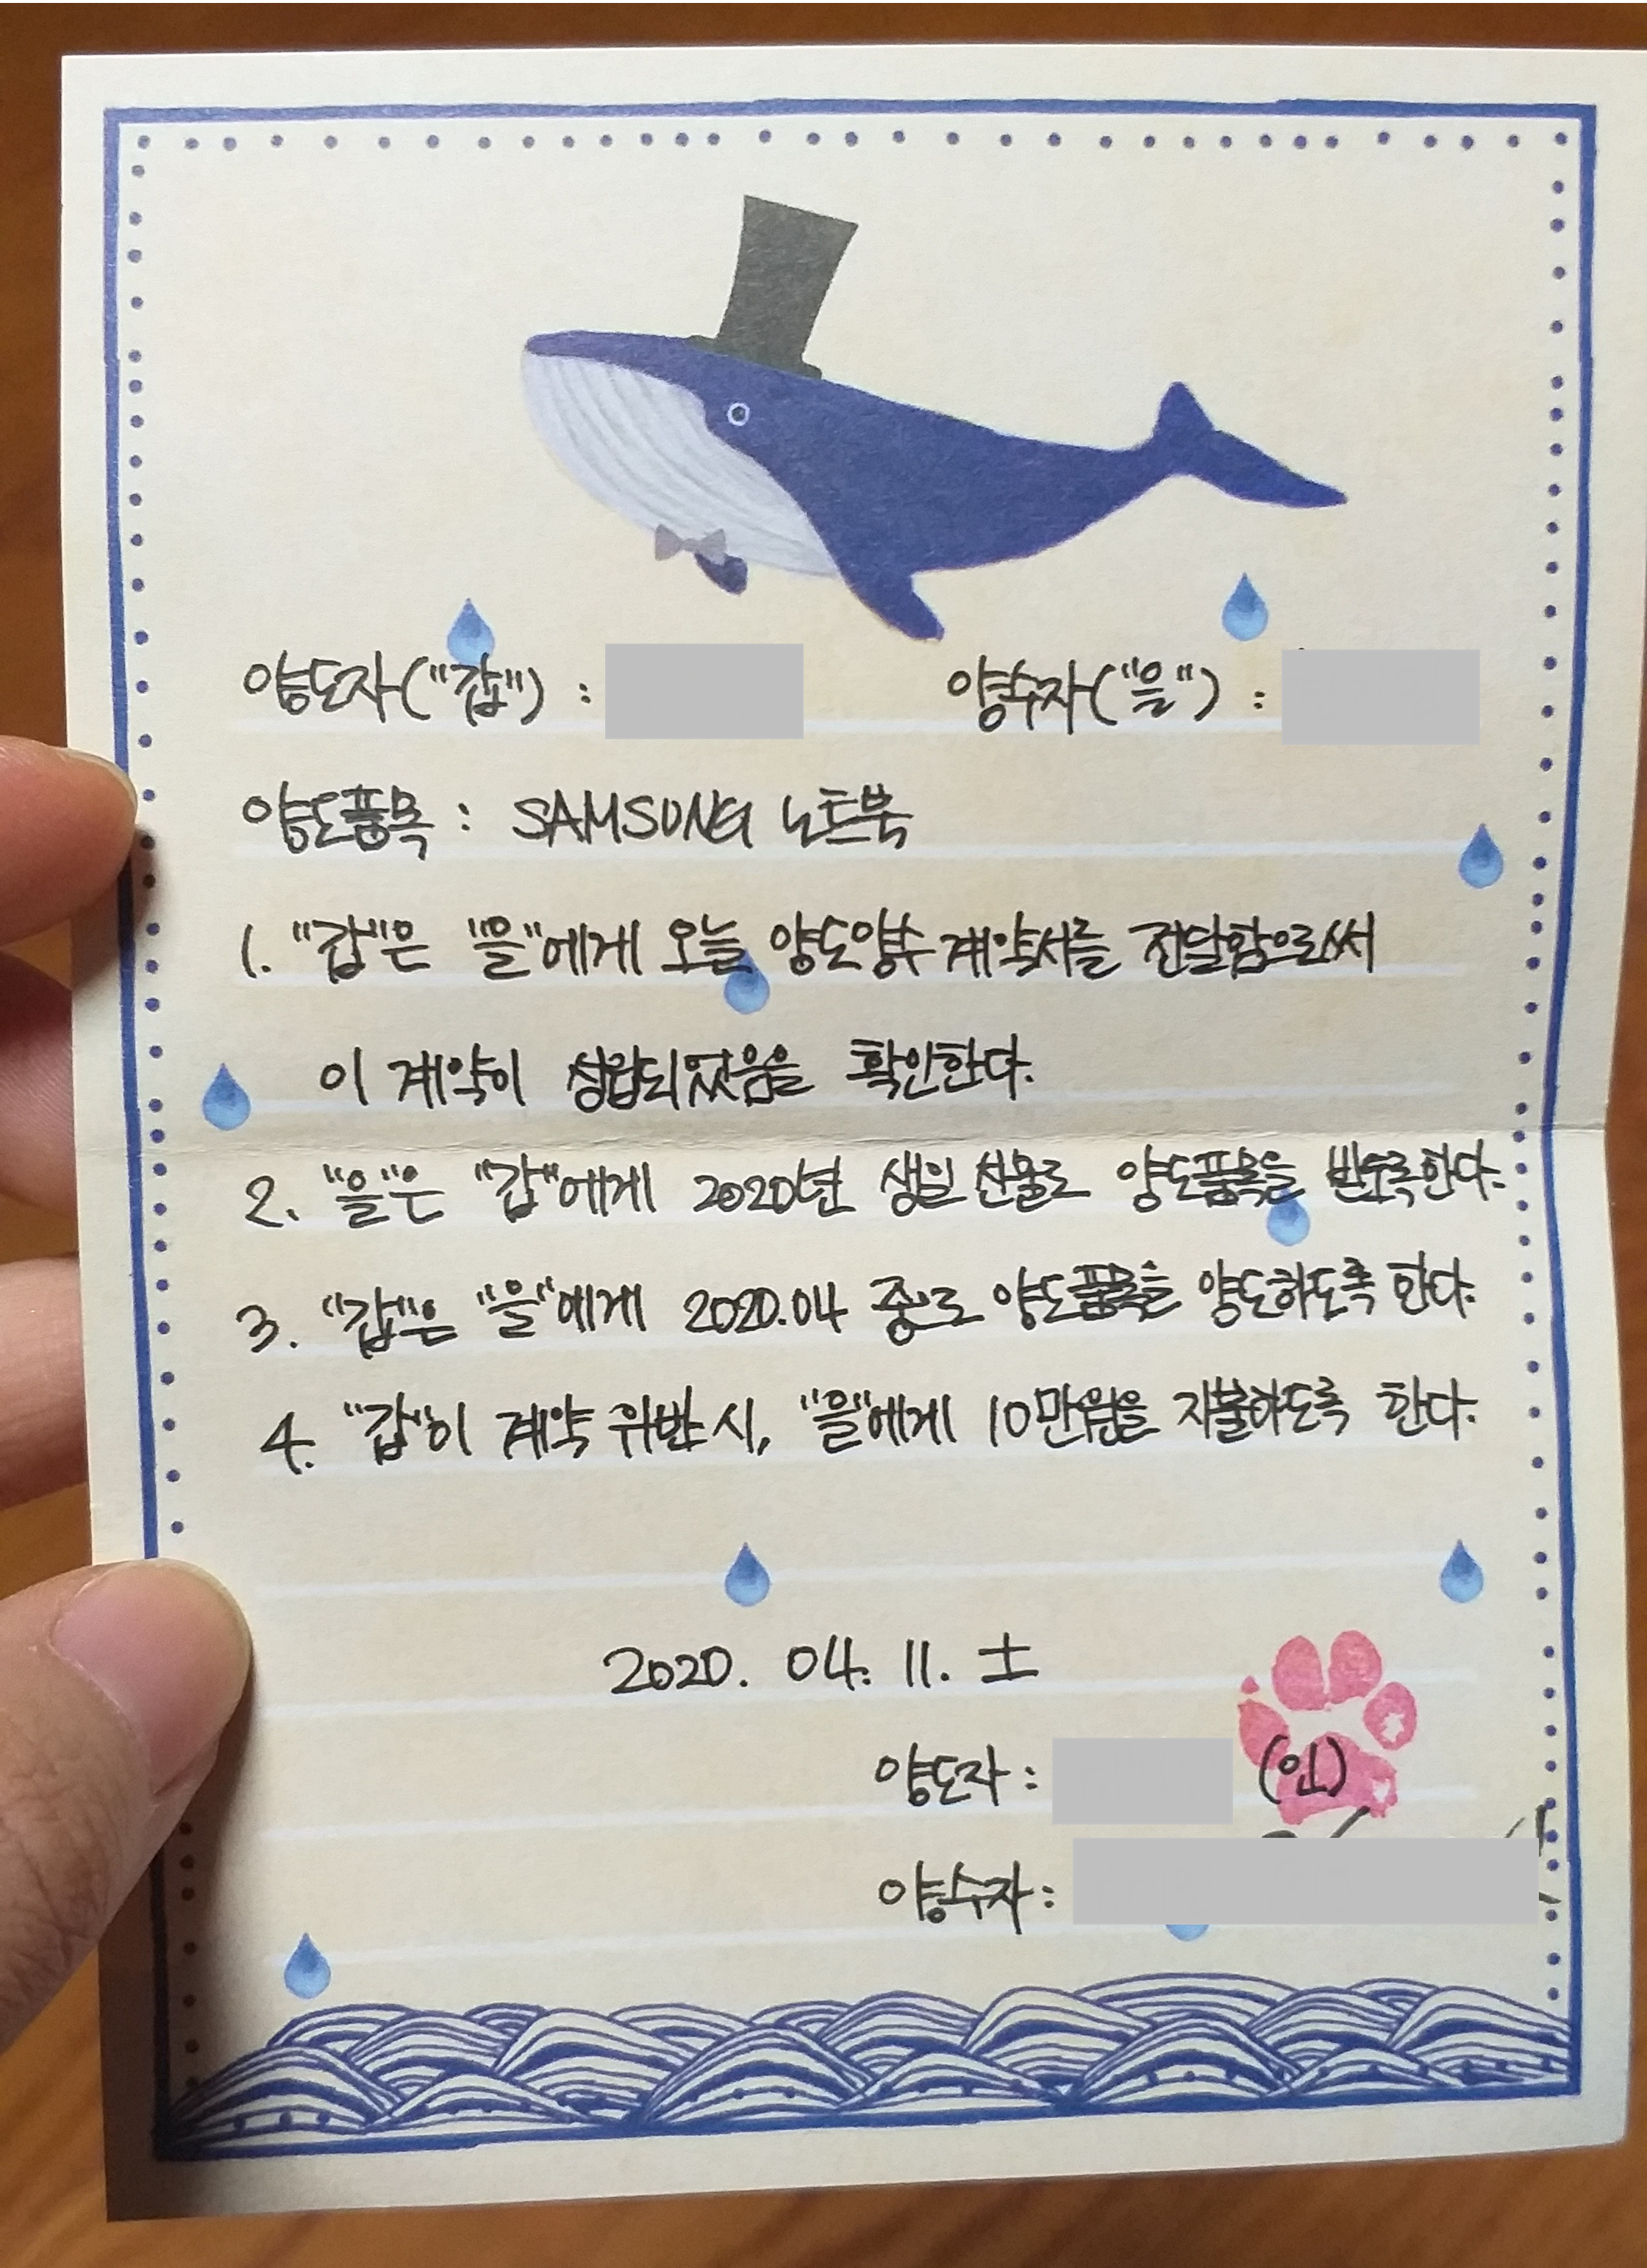 양도자("갑") : 양수자("을") :
양도품목 : SAMSUNG 노트북
1. "갑"은 "을"에게 오늘 양도양수 계약서를 전달함으로써
이 계약이 성립되었음을 확인한다.
2. "을"은 "갑"에게 2020년 생일 선물로 양도품목을 받도록한다.
3. "갑"은 "을"에게 2020.04 중으로 양도품목을 양도하도록 한다.
4. "갑"이 계약 위반 시, "을"에게 10만원을 지불하도록 한다.
2020. 04. 11. 土
양도자 : (인)
양수자 :